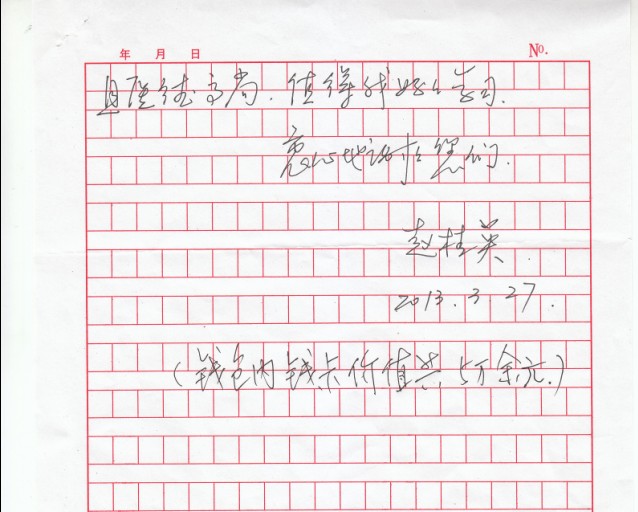 年 月 日 No.
道德高尚.值得我好好学习.
衷心地谢谢您们.
赵桂英
2013.3.27.
(钱包内钱卡价值共5万余元.)